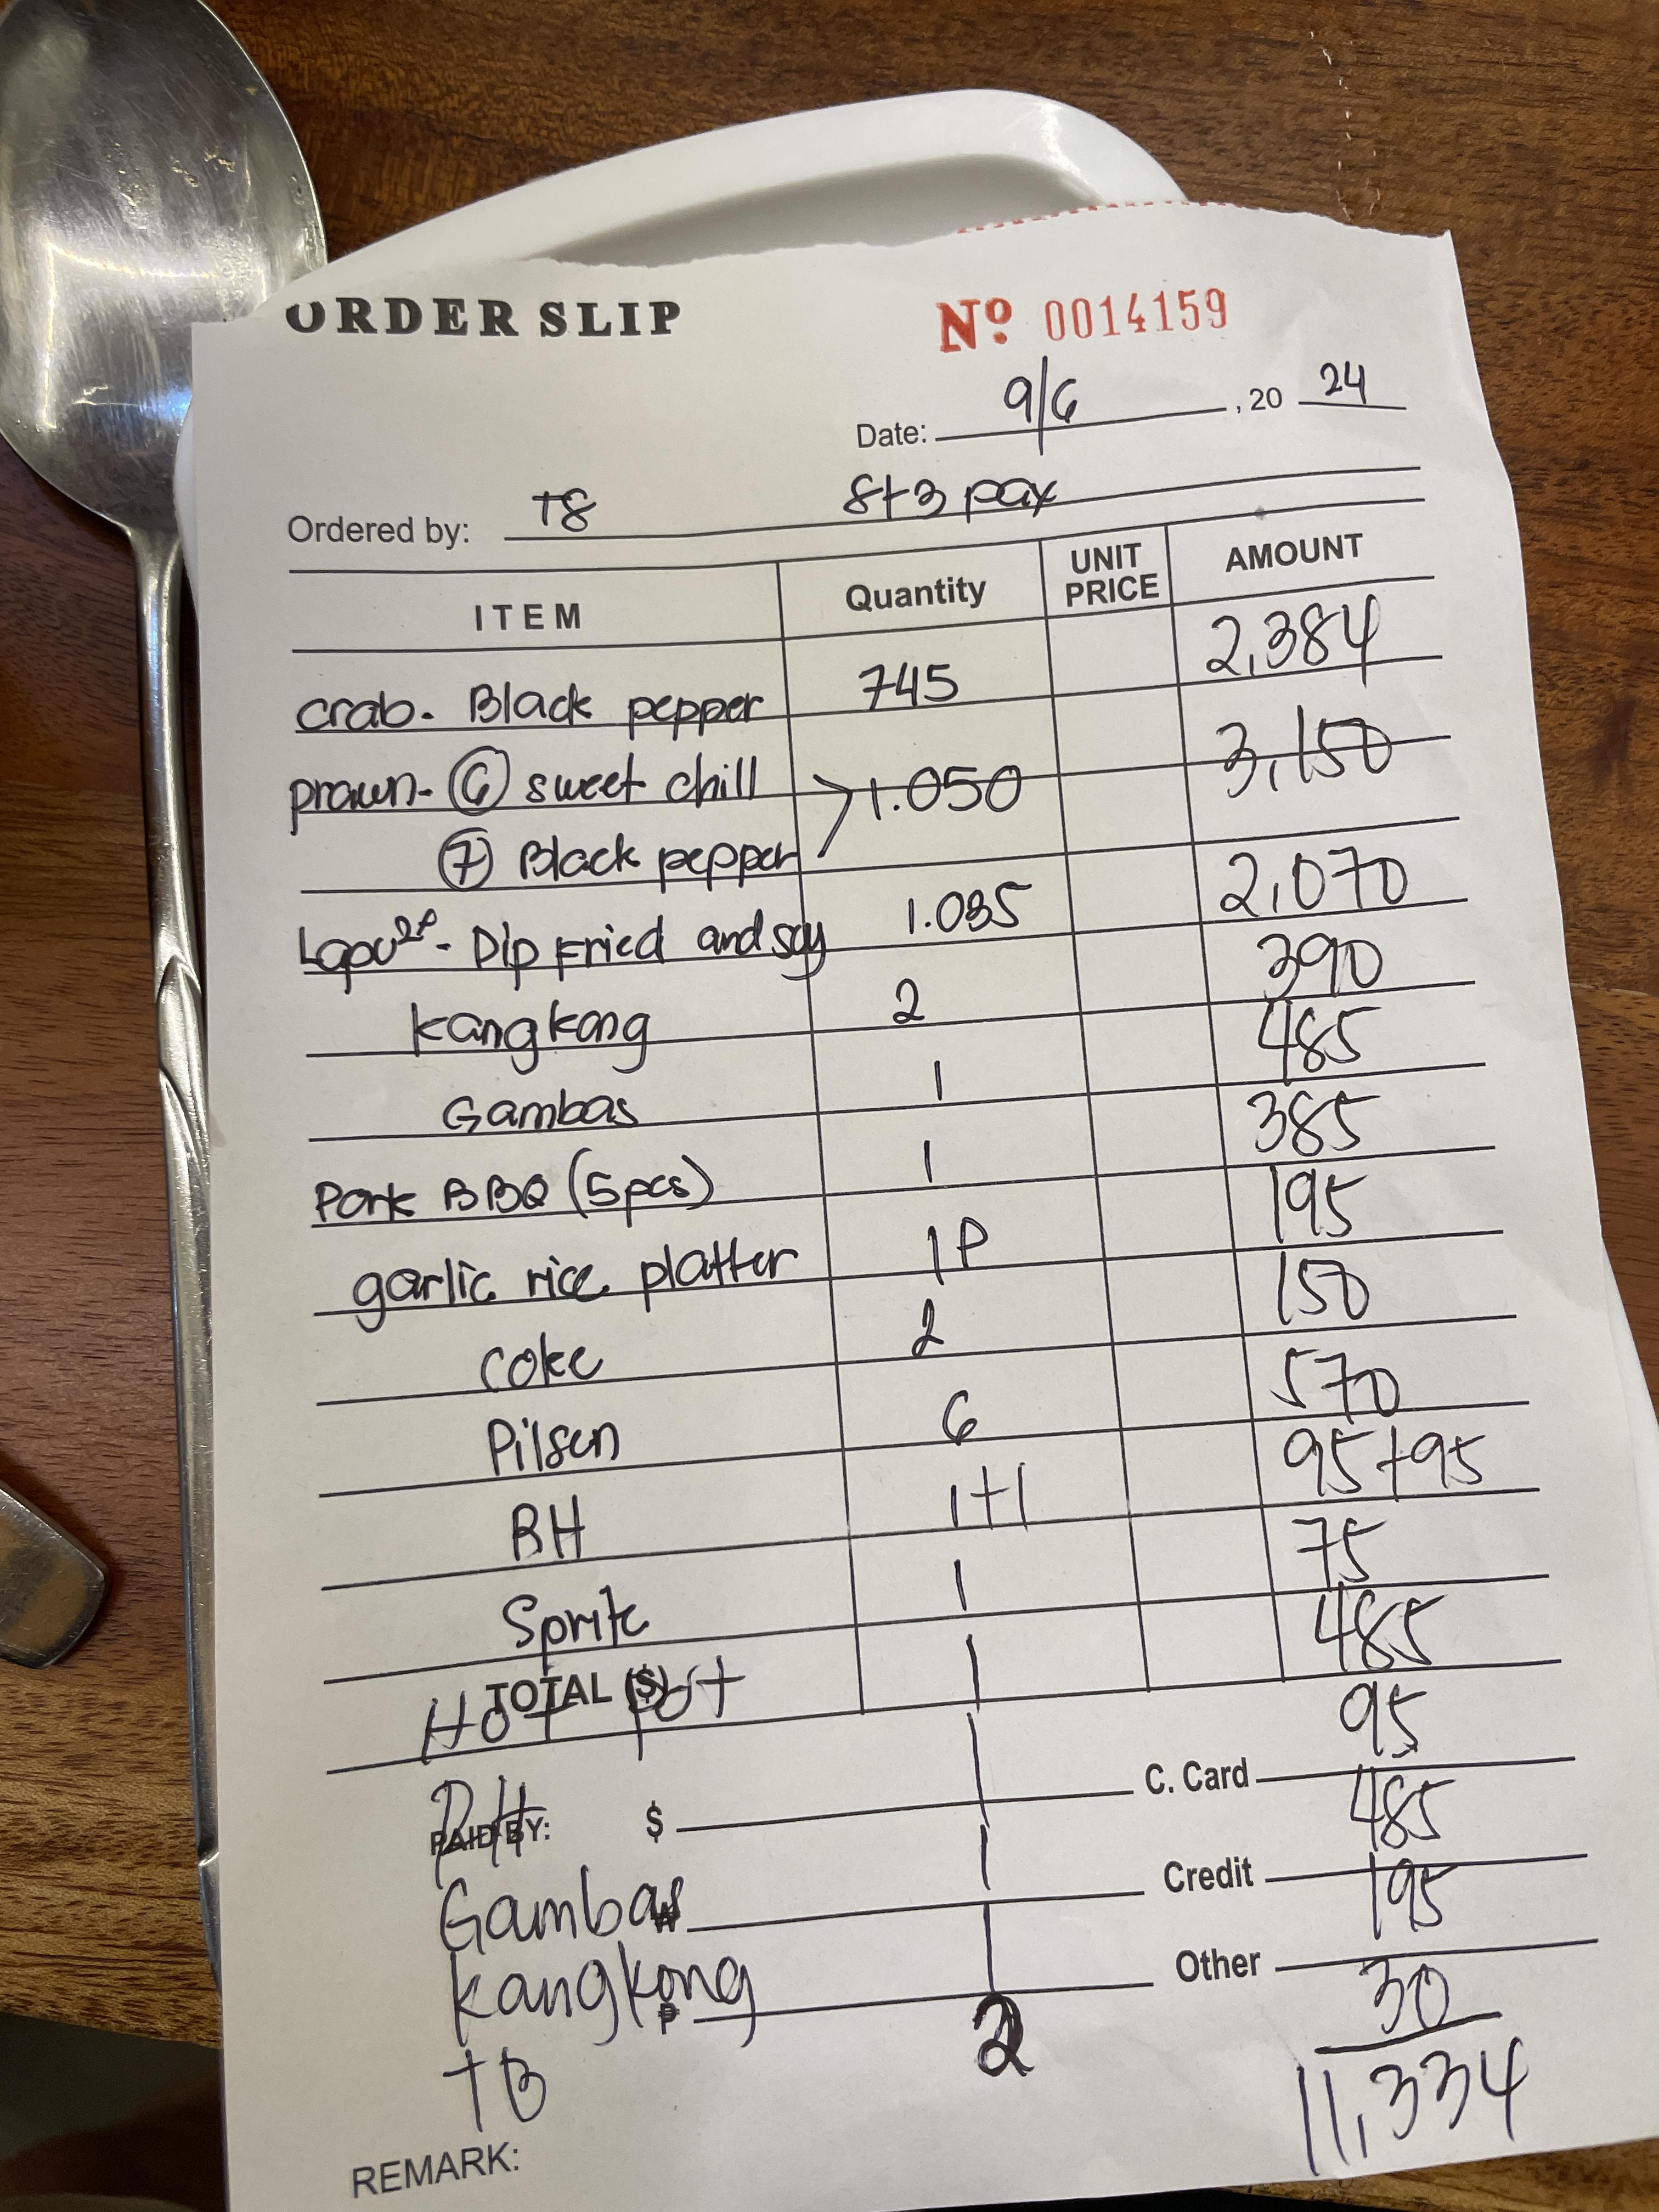 ORDER SLIP Nº 0014159
Date: 9/6, 20 24
Ordered by: T8 8+3 pax
ITEM Quantity UNIT PRICE AMOUNT
crab. Black pepper 745 2,384
prawn- 6 sweet chill 1.050 3,150
7 Black pepper
Lapu 2P - Dip Fried and soy 1.035 2,070
kangkong 2 390
Gambas 1 485
Pork BBQ (5pcs) 1 385
garlic rice platter 1P 195
coke 2 150
Pilsen 6 570
RH 1+1 95+95
Sprite 1 75
TOTAL ($)
Hot pot 1 485
RH 1 95
PAID BY: $ C. Card
Gambas 1 485
₩ Credit
kangkong 1 195
₱ Other
TB 2 30
11,334
REMARK: